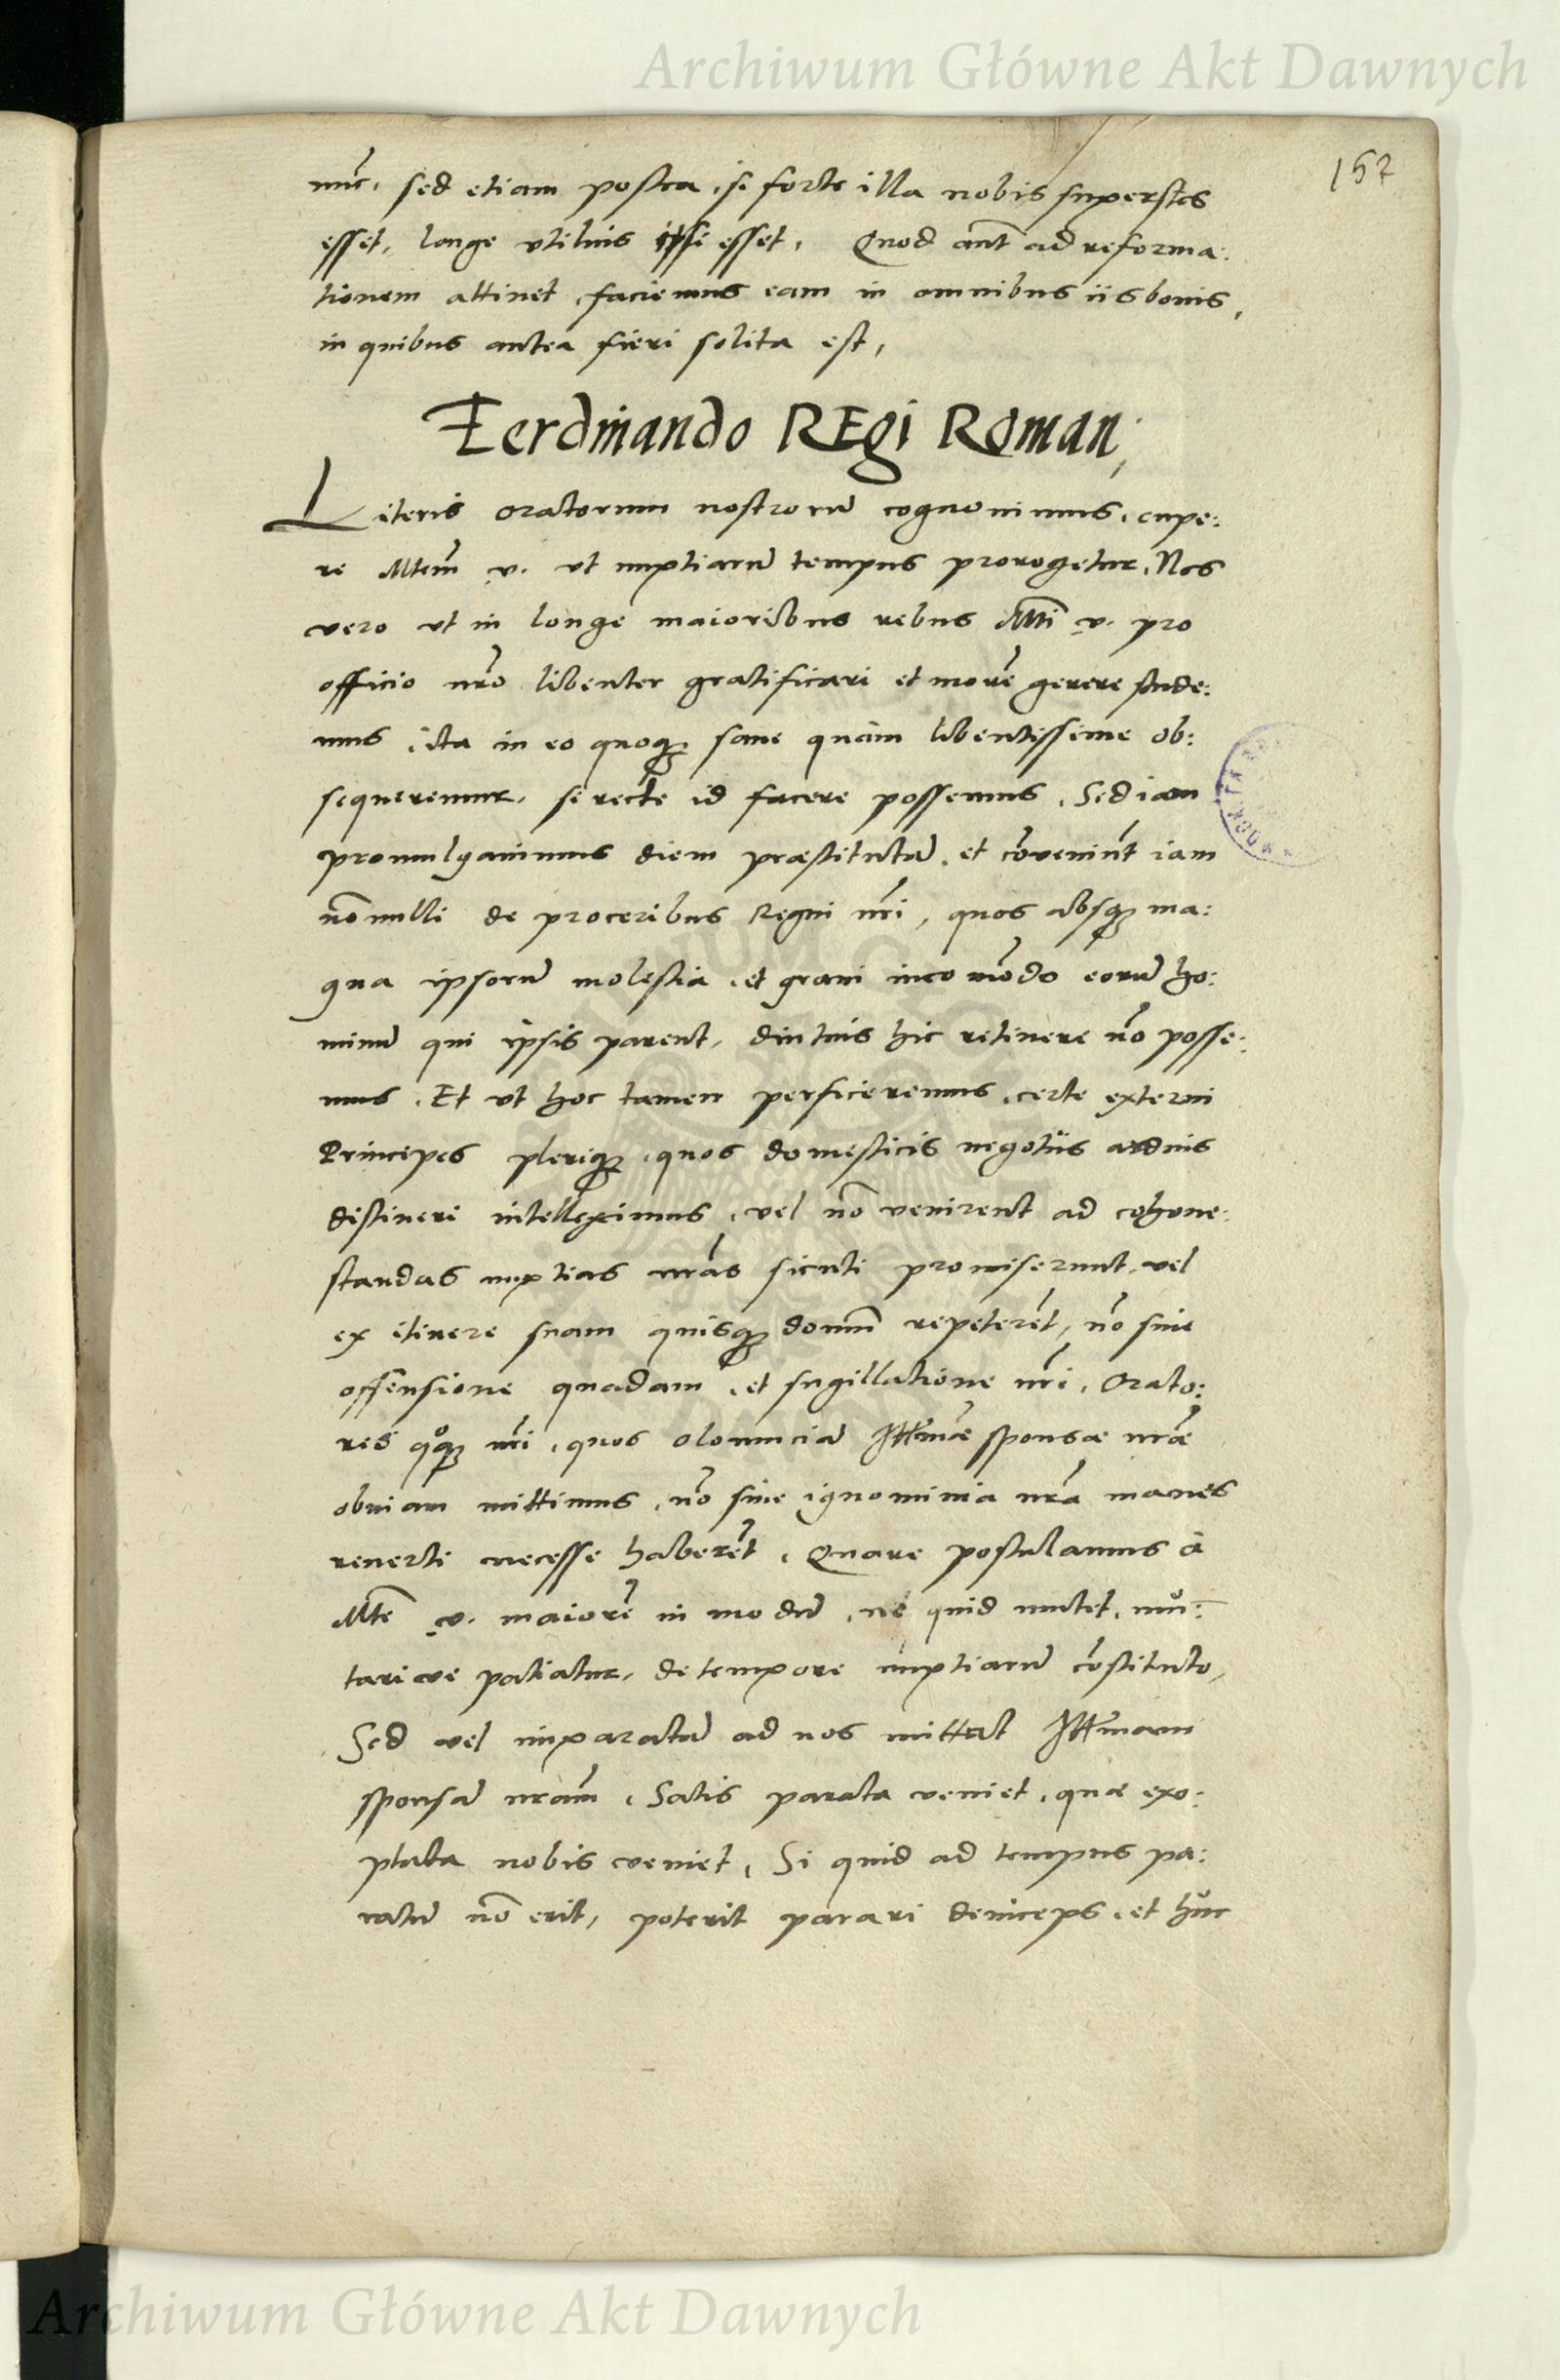 Archiwum Główne Akt Dawnych
157
nu̅c, sed etiam postea, si forte illa nobis superstes
esset, longe utilius ipsi esset, Quod aut̃ ad reforma:
tionem attinet, faciemus eam in omnibus iis bonis,
in quibus antea fieri solita est,
Ferdinando REgi Roman,
Literis oratorum nostroru̅ cognovimus, cupe:
re Mtem̃ v. ut nuptiaru̅ tempus prorogetur, Nos
vero ut in longe maioribus rebus Mti̅ v. pro
officio nr̃o libenter gratificari et more̅ gerere stude:
mus, ita in eo quoqꝫ sane quàm libentissime ob:
sequeremur, si recte id facere possemus, Sed iam
promulgavimus diem præstitutu̅, et co̅veniu̅t iam
no̅nulli de proceribus Regni nr̃i, quos absqꝫ ma:
gna ipsoru̅ molestia, et gravi inco̅modo eoru̅ ho:
minu̅ qui ipsis parent, diutius hic retinere no̅ posse:
mus, Et ut hoc tamen perficeremus, certe externi
Principes pleriqꝫ, quos domesticis negotiis arduis
distineri intelleximus, vel no̅ venirent ad cohone:
standas nuptias nr̃as sicuti promiserunt, vel
ex itinere suam quisqꝫ domu̅ repetere̅t, no̅ sine
offensione quadam, et sugillatione nr̃i, Orato:
res qͦqꝫ nr̃i, quos olomuciu̅ Illmæ̃ sponsæ nr̃æ
obviam mittimus, no̅ sine ignominia nr̃a inanes
reverti necesse habere̅t, Quare postulamus à
Mte̅ v. maiore̅ in modu̅, ne quid mutet, mu:
tarive patiatur, de tempore nuptiaru̅ co̅stituto,
Sed vel imparatu̅ ad nos mittat Illm̃am
sponsa̅ nr̃am, Satis parata veniet, quæ exo:
ptata nobis veniet, Si quid ad tempus pa:
ratu̅ no̅ erit, poterit parari deinceps, et huc
Archiwum Główne Akt Dawnych